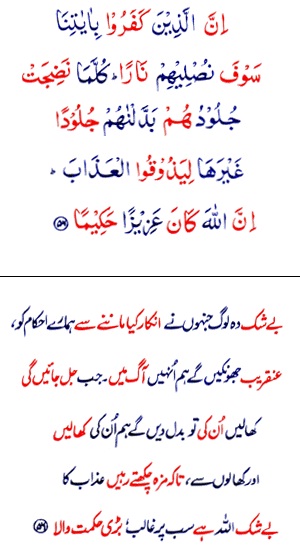 اِنَّ الَّذِیْنَ كَفَرُوْا بِاٰیٰتِنَا
سَوْفَ نُصْلِیْهِمْ نَارًا ؕ كُلَّمَا نَضِجَتْ
جُلُوْدُهُمْ بَدَّلْنٰهُمْ جُلُوْدًا
غَیْرَهَا لِیَذُوْقُوا الْعَذَابَ ؕ
اِنَّ اللّٰهَ كَانَ عَزِیْزًا حَكِیْمًا ﴿۵۶﴾
بے شک وہ لوگ جنہوں نے انکار کیا ماننے سے ہمارے احکام کو،
عنقریب جھونکیں گے ہم اُنہیں آگ میں۔ جب جل جائیں گی
کھالیں اُن کی تو بدل دیں گے ہم اُن کی کھالیں
اور کھالوں سے، تاکہ مزہ چکھتے رہیں عذاب کا
بے شک اللہ ہے سب پر غالب، بڑی حکمت والا ﴿۵۶﴾